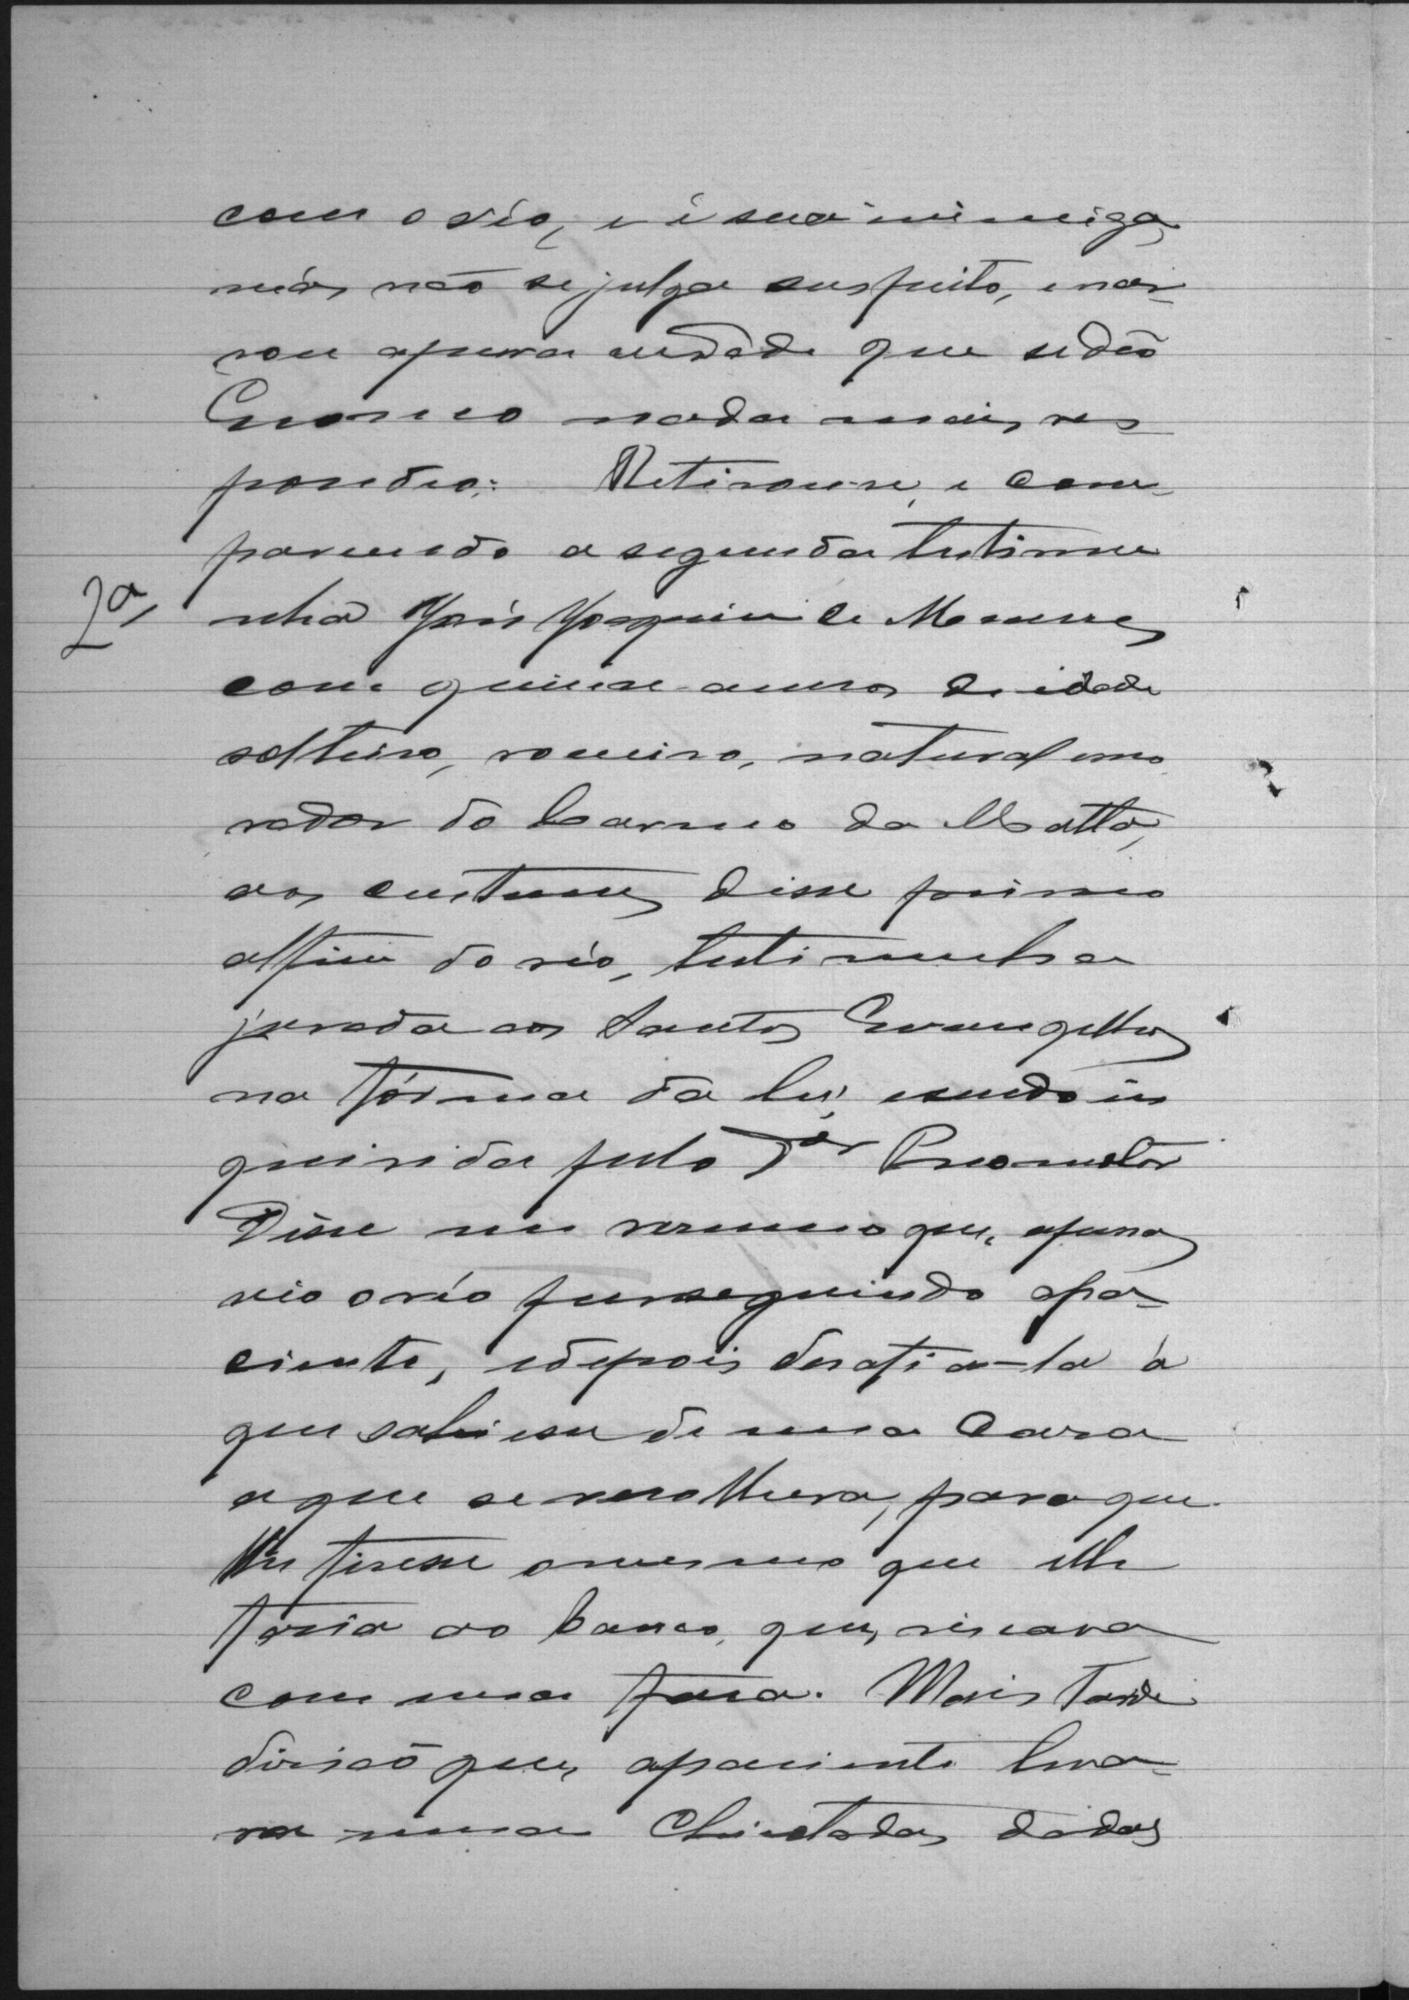 com o réo, e é sua inimiga,
más não se julga suspeito, e nar-
rou a pura verdade que se deo
E como nada mais res
pondeo: Retirou-se, e com-
parecendo a segunda testimu
2ª, nha José Joaquim de Menezes
com quinze annos de idade
solteiro, roceiro, natural e mo
rador do Carmo da Matta,
aos custumes disse primo
affim do réo, testimunha
jurada aos Santos Evangelhos
na fórma da lei, e sendo in
quirida pelo Dor Promotor
Disse em resumo que, apenas
vio o réo perseguindo a pa-
ciente, e depois desafia-la á
que sahisse de uma casa
a que se recolhera, para que
lhe fisesse o mesmo que elle
fasia ao banco, que, riscava
com uma faca. Mais tarde
dirião que, a paciente leva-
ra umas Chicotadas dadas